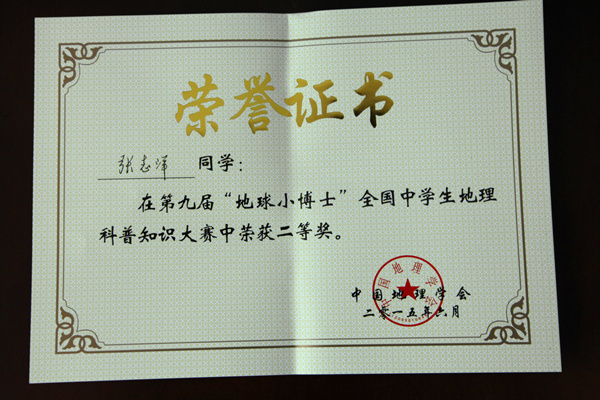 荣誉证书
张志洋 同学：
在第九届“地球小博士”全国中学生地理
科普知识大赛中荣获二等奖。
中国地理学会
二零一五年六月
中国地理学会